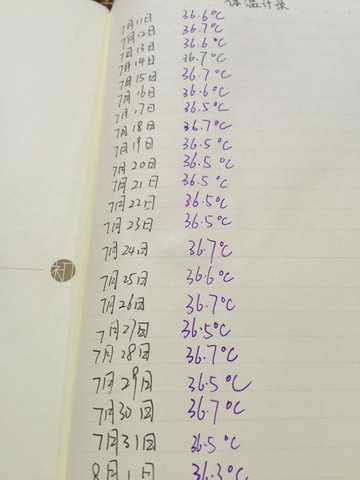 体温计录
7月11日 36.6℃
7月12日 36.7℃
7月13日 36.6℃
7月14日 36.7℃
7月15日 36.7℃
7月16日 36.6℃
7月17日 36.5℃
7月18日 36.7℃
7月19日 36.5℃
7月20日 36.5℃
7月21日 36.5℃
7月22日 36.5℃
7月23日 36.5℃
7月24日 36.7℃
7月25日 36.6℃
7月26日 36.7℃
7月27日 36.5℃
7月28日 36.7℃
7月29日 36.5℃
7月30日 36.7℃
7月31日 36.5℃
8月1日 36.3℃